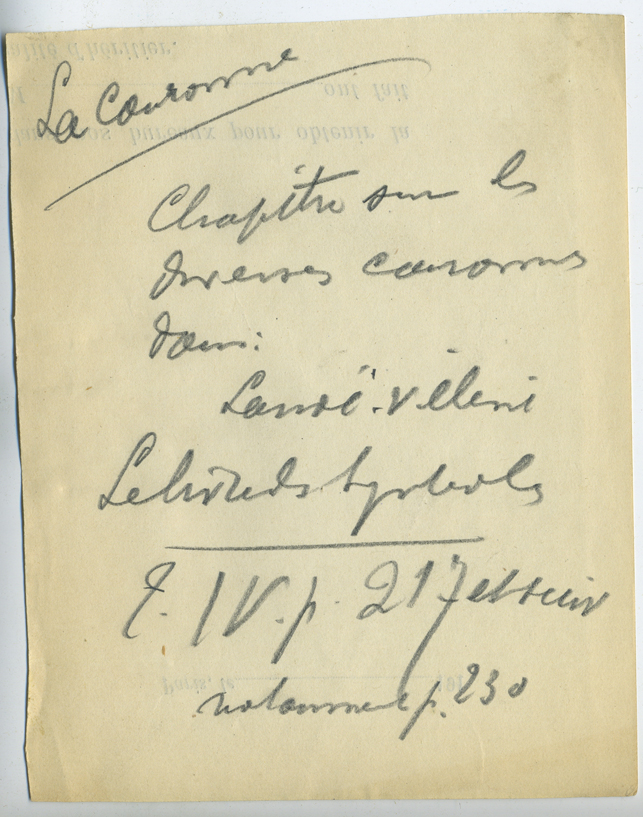 La Couronne
Chapitre sur les
diverses couronnes
dans:
Lanoë-Villène
Le livre des Symboles
T. IV. p. 217 et suiv
notamment p. 230